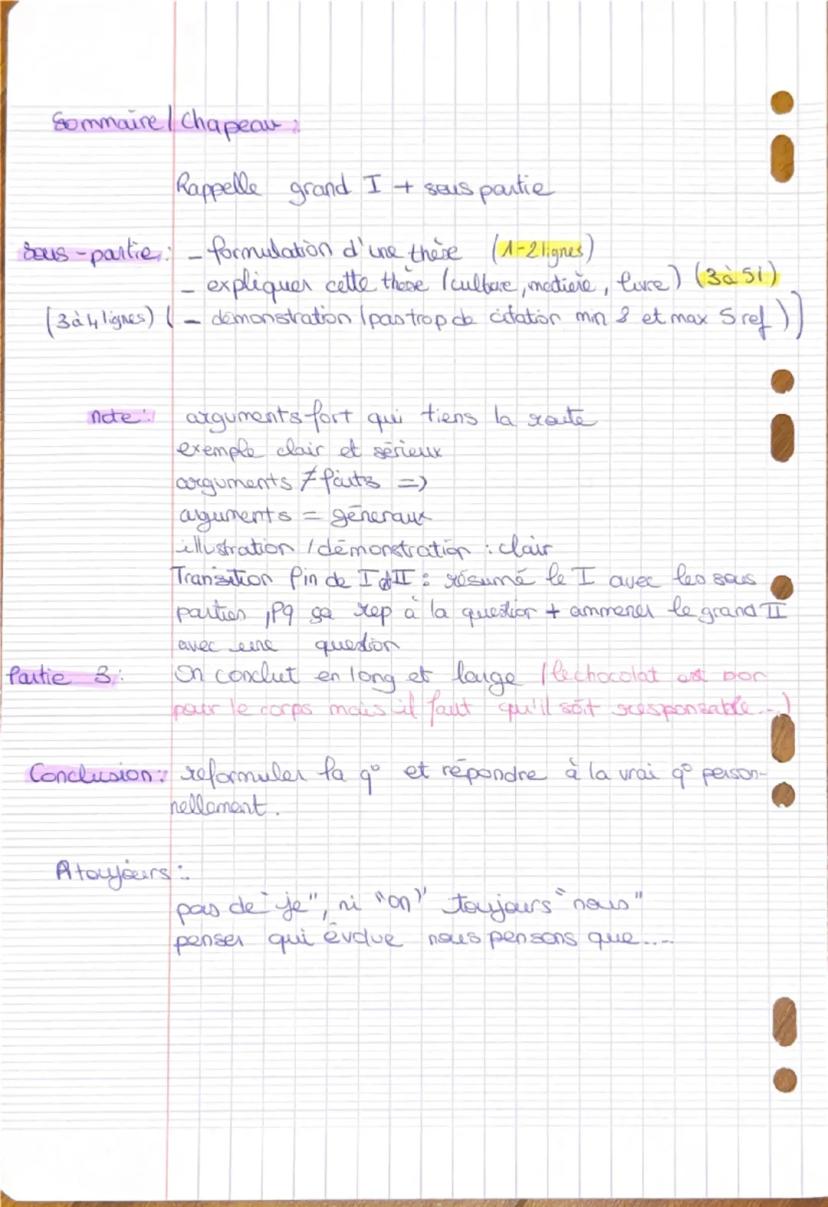 Sommaire / Chapeau :
Rappelle grand I + sous partie
sous-partie : - formulation d'une thèse (1-2 lignes)
- expliquer cette thèse (culture, matière, livre) (3 à 5l)
(3 à 4 lignes) ( - démonstration (pas trop de citation min 2 et max 5 ref ) )
note : arguments fort qui tiens la route
exemple clair et sérieux
arguments ≠ faits =>
arguments = généraux
illustration / démonstration : clair
Transition fin de I à II : résumé le I avec les sous
parties, pq ça rep à la question + ammener le grand II
avec une question
Partie 3 : On conclut en long et large (le chocolat est bon
pour le corps mais il faut qu'il soit responsable...)
Conclusion : reformuler la q° et répondre à la vrai q° person-
nellement.
A toujours :
pas de "je", ni "on" toujours "nous"
penser qui évolue nous pensons que....